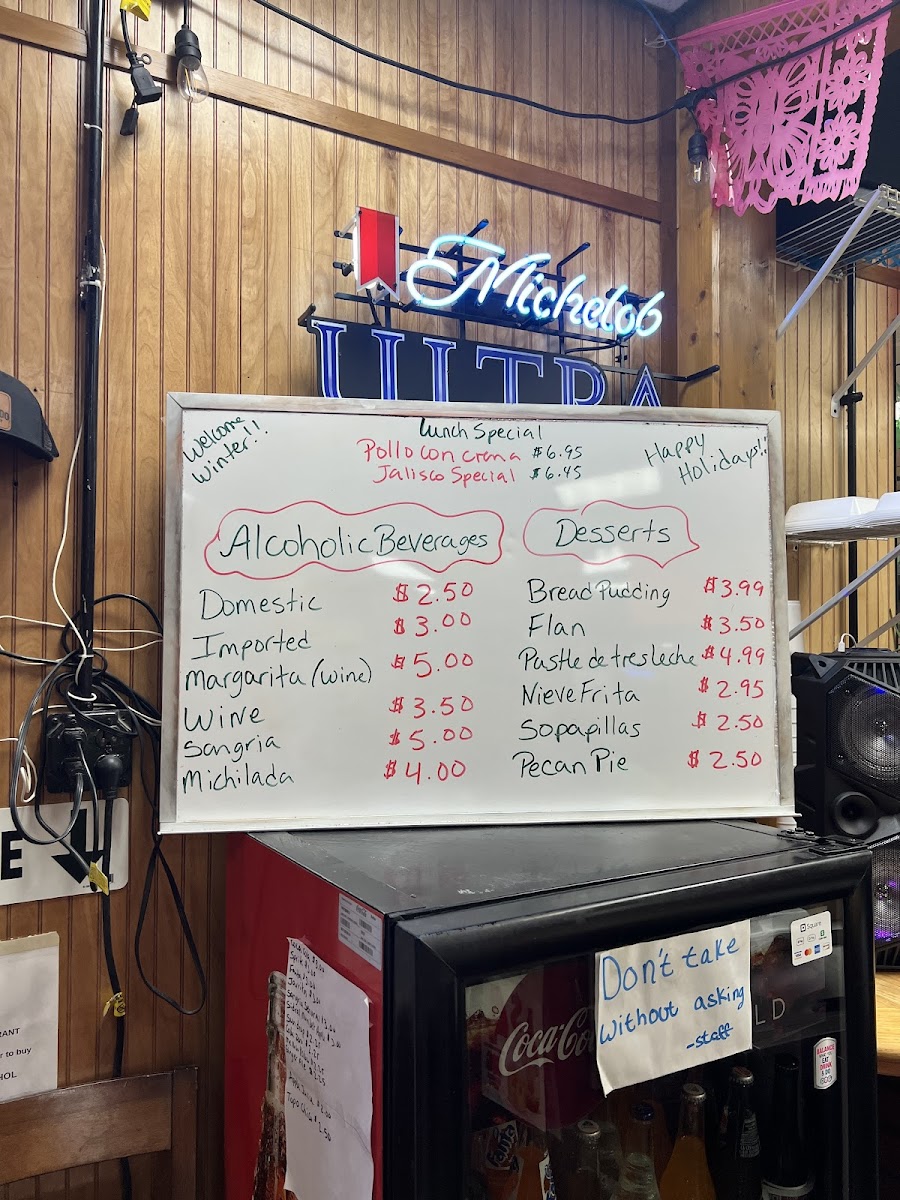 Michelob
ULTRA
Welcome
Winter!!
Lunch Special
Pollo con crema $6.95
Jalisco Special $6.45
Happy
Holidays!!
Alcoholic Beverages
Domestic $2.50
Imported $3.00
Margarita (wine) $5.00
Wine $3.50
Sangria $5.00
Michilada $4.00
Desserts
Bread Pudding $3.99
Flan $3.50
Pastle de tres leche $4.99
Nieve Frita $2.95
Sopapillas $2.50
Pecan Pie $2.50
E
RANT
r to buy
HOL.
Don't take
without asking
-staff
Square
Coca-Co
LD
Topo Chico $2.50
Fanta
BALANCE
EAT
DRINK
& DO
GOOD